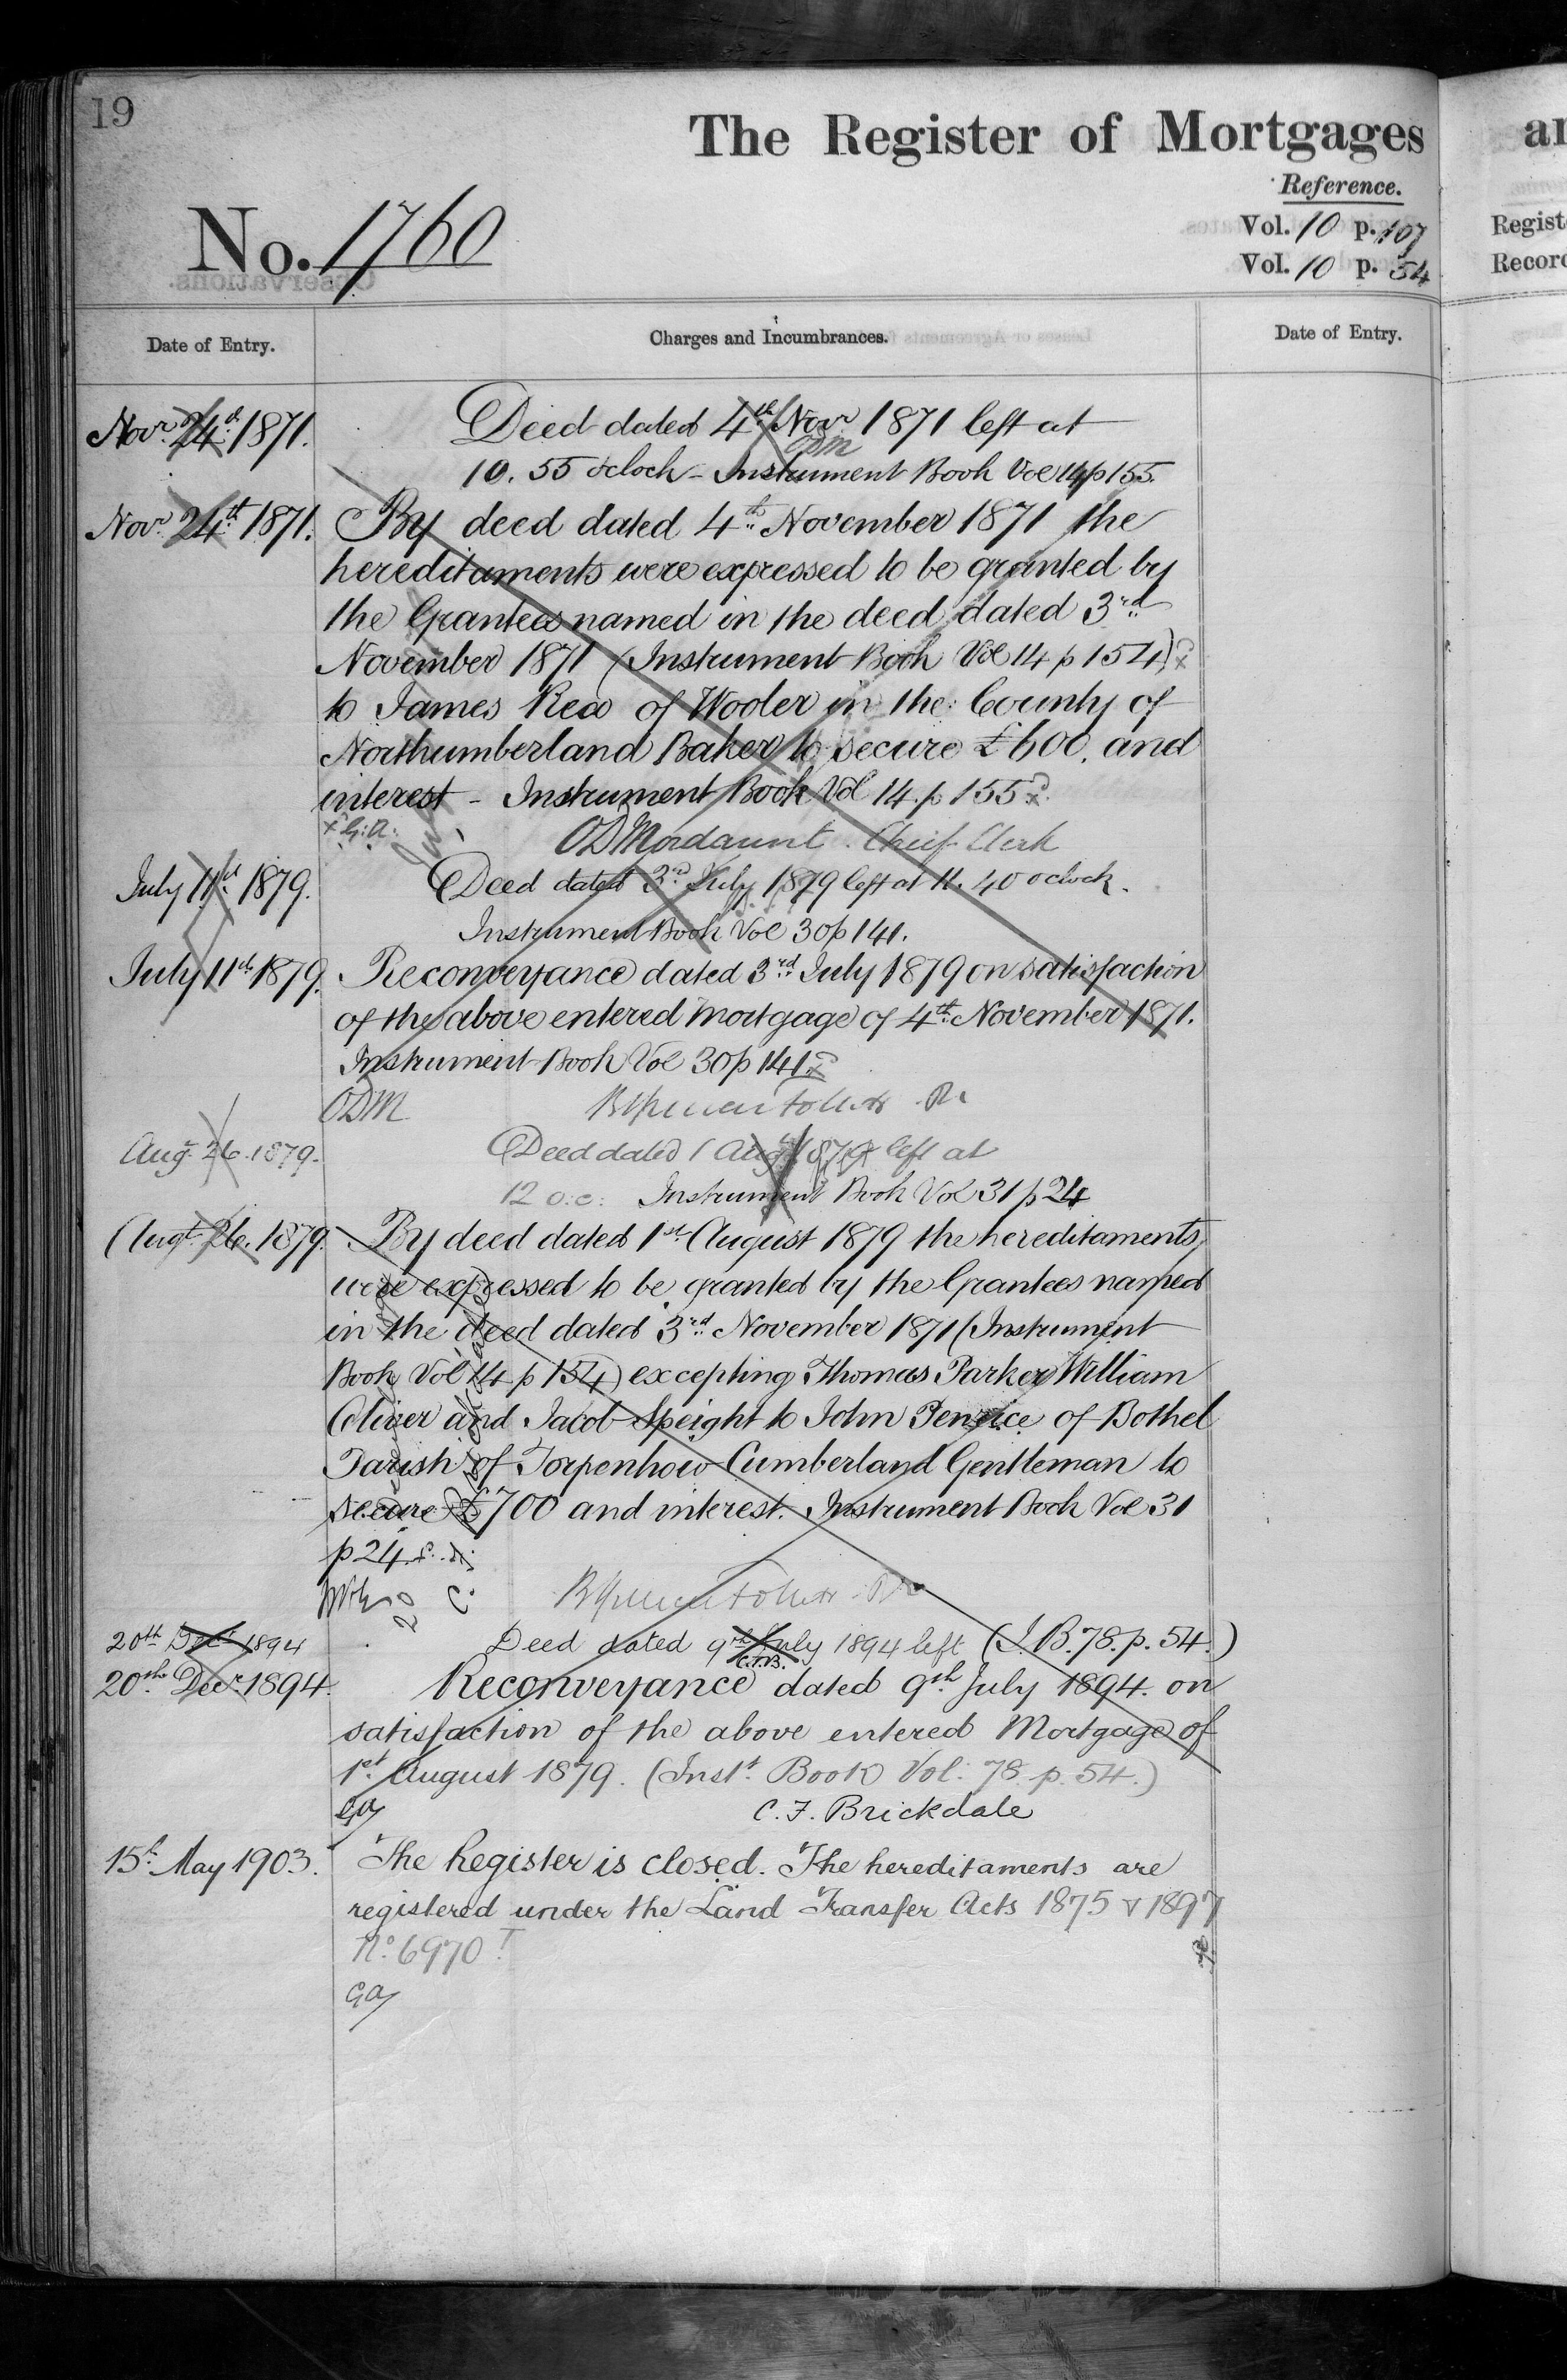 19
The Register of Mortgages
Reference.
No. 1760
Vol. 10 p. 107
Vol. 10 p. 54
Regist
Record
Date of Entry.
Charges and Incumbrances.
Date of Entry.
Novr 24th 1871.
Deed dated 4th Novr 1871 left at
ODM
10. 55 oclock - Instrument Book Vol 14 p 155.
Novr 24th 1871.
By deed dated 4th November 1871 the
hereditaments were expressed to be granted by
the Grantees named in the deed dated 3rd
November 1871 (Instrument Book Vol 14 p 154)
to James Rea of Wooler in the County of
Northumberland Baker to secure £600. and
interest - Instrument Book Vol 14. p 155
G.A.
ODMordaunt. Chief Clerk
July 11th 1879.
Deed dated 3rd July 1879 left at 11. 40 oclock.
Instrument Book Vol 30 p 141.
July 11th 1879.
Reconveyance dated 3rd July 1879 on satisfaction
of the above entered Mortgage of 4th November 1871.
Instrument Book Vol 30 p 141
ODM
Aug. 26. 1879.
Deed dated 1 Augt 1879 left at
12 o.c. Instrument Book Vol 31 p 24
Augt 26. 1879.
By deed dated 1st August 1879 the hereditaments
were expressed to be granted by the Grantees named
in the deed dated 3rd November 1871 (Instrument
Book Vol 14 p 154) excepting Thomas Parker William
Oliver and Jacob Speight to John Penrice of Bothel
Parish of Torpenhow Cumberland Gentleman to
secure £700 and interest. Instrument Book Vol 31
p 24.
20th Decr 1894
Deed dated 9th July 1894 left (I.B. 78. p. 54.)
C.F.B.
20th Decr 1894.
Reconveyance dated 9th July 1894. on
satisfaction of the above entered Mortgage of
1st August 1879. (Inst. Book Vol: 78. p. 54.)
GA
C. F. Brickdale
15th May 1903.
The Register is closed. The hereditaments are
registered under the Land Transfer Acts 1875 & 1897
No. 6970
GA